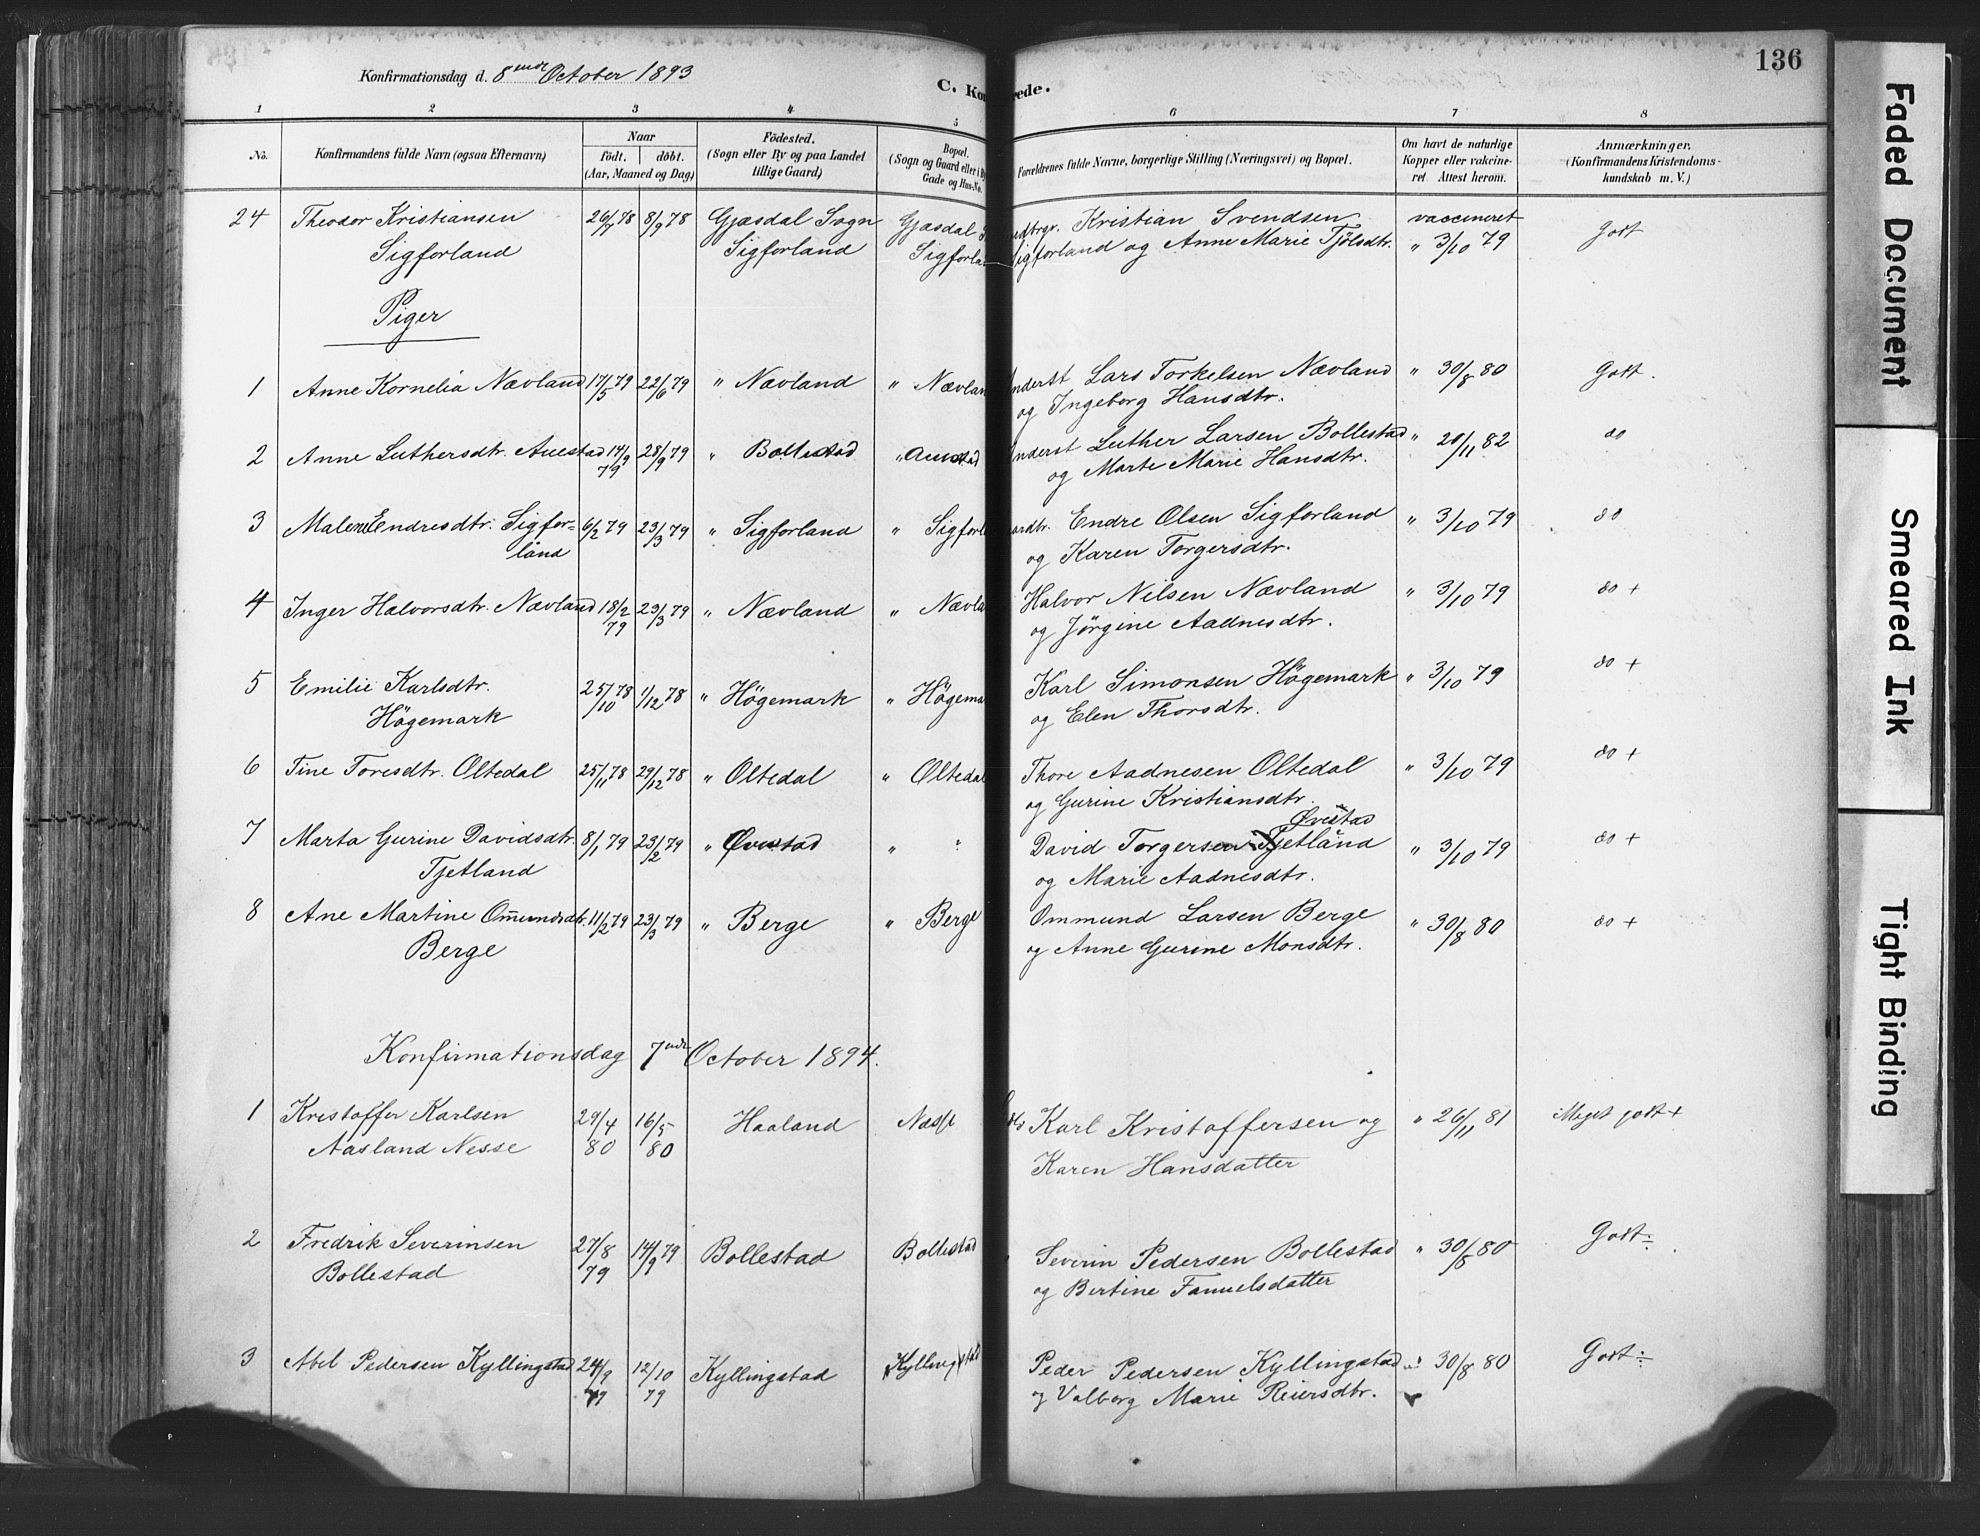 136
Konfirmationsdag d. 8nde October 1893
C. Kon rede.
1 2 3 4 5 6 7 8
No. Konfirmandens fulde Navn (ogsaa Efternavn) Naar födt. döbt. (Aar, Maaned og Dag) Födested. (Sogn eller By og paa Landet tillige Gaard) Bopæl. (Sogn og Gaard eller i By Gade og Hus-No. Forældrenes fulde Navne, borgerlige Stilling (Næringsvei) og Bopæl. Om havt de naturlige Kopper eller vakcineret Attest herom. Anmærkninger. (Konfirmandens Kristendomskundskab m. V.)
24 Theodor Kristiansen 26/7 78 8/9 78 Gjæsdal Sogn Gjæsdal Kristian Svendsen vaccineret Godt
Sigforland Sigforland Sigforla igforland og Anne Marie Tjölsdtr. " 3/10 79
Piger
1 Anne Kornelia Nævland 17/5 79 22/6 79 " Nævland " Nævlan Lars Torkelsen Nævland " 30/8 80 Godt.
og Ingeborg Hansdtr.
2 Anne Luthersdtr. Auestad 14/9 79 28/9 79 " Bollestad " Auestad nderst Luther Larsen Bollestad " 20/11 82 do
og Marte Marie Hansdtr.
3 Malene Endresdtr. Sigfor- 6/2 79 23/3 79 " Sigforland " Sigforl Endre Olsen Sigforland " 3/10 79 do
land og Karen Torgersdtr.
4 Inger Halvorsdtr. Nævland 18/2 79 23/3 79 " Nævland " Nævla Halvor Nilsen Nævland " 3/10 79 do +
og Jörgine Aadnesdtr.
5 Emilie Karlsdtr. 25/10 78 1/12 78 " Högemark " Högema Karl Simonsen Högemark " 3/10 79 do +
Högemark og Elen Thorsdtr.
6 Tine Toresdtr. Oltedal 25/11 78 29/12 78 " Oltedal " Oltedal Thore Aadnesen Oltedal " 3/10 79 do +
og Gurine Kristiansdtr.
Øvestad
7 Marta Gurine Davidsdtr. 8/1 79 23/2 79 " Øvestad " " David Torgersen Tjetland " 3/10 79 do +
Tjetland og Marie Aadnesdtr.
8 Ane Martine Omundsdtr. 11/2 79 23/3 79 " Berge " Berge Ommund Larsen Berge " 30/8 80 do +
Berge og Anne Gurine Monsdtr.
Konfirmationsdag 7nde October 1894.
1 Kristoffer Karlsen 29/4 80 16/5 80 Haaland Næsse Karl Kristoffersen og " 26/11 81 Meget godt +
Aasland Nesse Karen Hansdatter
2 Fredrik Severinsen 27/8 79 14/9 79 Bollestad Bollestad Severin Pedersen Bollestad " 30/8 80 Godt ÷
Bollestad og Bertine Tanuelsdatter
3 Abel Pedersen Kyllingstad 24/9 79 12/10 79 Kyllingstad Kyllingstad Peder Pedersen Kyllingstad " 30/8 80 Godt ÷
og Valborg Marie Reiersdtr.
Faded Document
Smeared Ink
Tight Binding